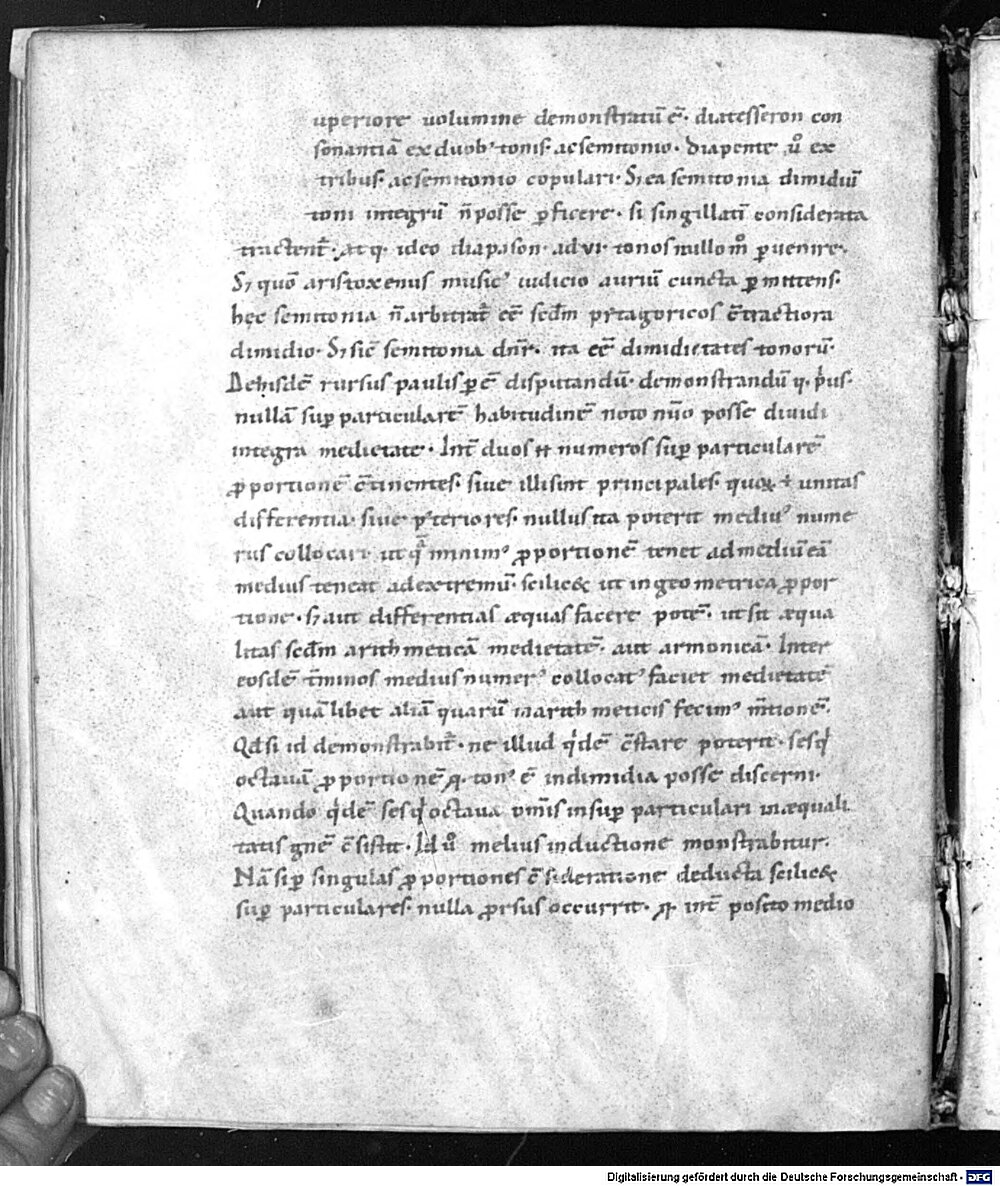 uperiore uolumine demonstratū ē· diatesseron con
sonantiā ex duob' tonis· ac semitonio· diapente u̾ ex
tribus· ac semitonio copulari· Sꝫ ea semitonia dimidiū
toni integrū n̄ posse ꝑficere· si singillatī considerata
tractent̄· atq· ideo diapason· ad vi· tonos nullom̊ ꝑuenire·
Sꝫ quō aristoxenus music' iudicio auriū cuncta ꝑmittens·
hęc semitonia n̄ arbitrat̄ eē scdm pytagoricos c̄tractiora
dimidio· Sꝫ sic̄ semitonia dnr̄· ita eē dimidietates tonorū·
De hisdē rursus paulisꝑ ē disputandū· demonstrandū q· p̍us·
nullā suꝑ particularē habitudinē noto nūo posse diuidi
integra medietate· Int̄ duos n numeros suꝑ particularē
ꝓportionē c̄tinentes· siue illi sint principales· quoꝝ ÷ unitas
differentia· siue p'teriores· nullus ita poterit mediu' nume
rus collocari· ut q̄ minim' ꝓportionē tenet ad mediū eā
medius teneat ad extremū· scilic& ut in geometrica ꝓpor
tione· sꝫ aut differentias æquas facere potē· ut sit æqua
litas scdm arithmeticā medietatē· aut armonicā· Inter
eosdē t̄minos medius numer' collocat' faciet medietatē
aut quālibet aliā quarū in arithmeticis fecim' m̄tionē·
Qd si id demonstrabit̄· ne illud q̍dē c̄stare poterit· sesq̍
octauā ꝓportionē q· ton' ē in dimidia posse discerni·
Quando q̍dē sesq̍octaua om̄is in suꝑ particulari inæquali
tatis gn̄e c̄sistit· Id u̾ melius inductione monstrabitur·
Nā si ꝑ singulas ꝓportiones c̄sideratione deducta scilic&
suꝑ particulares· nulla ꝓrsus occurrit· q· int̄ posito medio
Digitalisierung gefördert durch die Deutsche Forschungsgemeinschaft · DFG